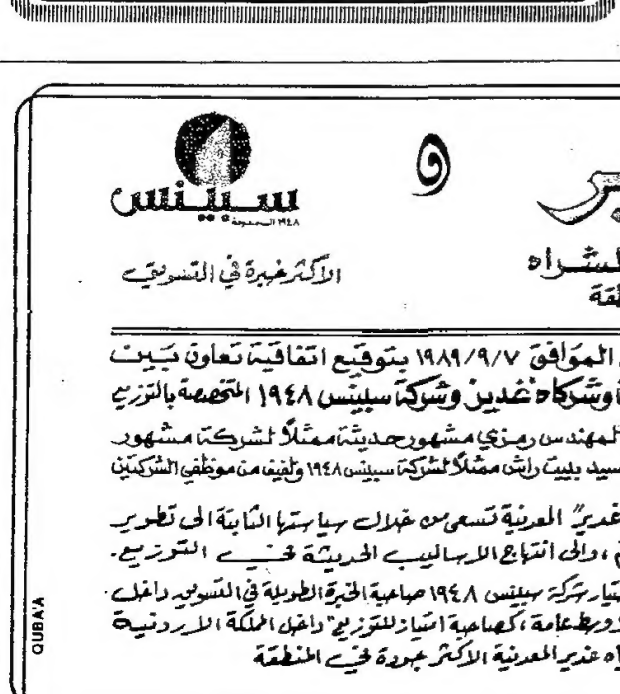 سبينس
١٩٤٨ المحدودة
و
الأكثر خبرة في التسويق
الموافق ١٩٨٩/٩/٧ بتوقيع اتفاقية تعاون بين
وشركاه غدير وشركة سبينس ١٩٤٨ المتخصصة بالتوزيع
المهندس رمزي مشهور حديثة ممثلاً لشركة مشهور
ممثلاً لشركة سبينس ١٩٤٨ ولفيف من موظفي الشركتين
غدير" المعدنية تسعى من خلال سياستها الثابتة الى تطوير
، والى انتهاج الاساليب الحديثة في التوزيع.
شركة سبينس ١٩٤٨ صاحبة الخبرة الطويلة في التسويق داخل
عامة، كصاحبة امتياز للتوزيع" داخل المملكة الاردنية
غدير المعدنية الاكثر جودة في المنطقة
QUBA'A